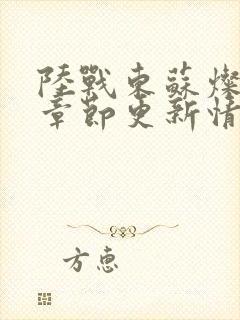 陸戰東蘇燦
章節更新情
方惠